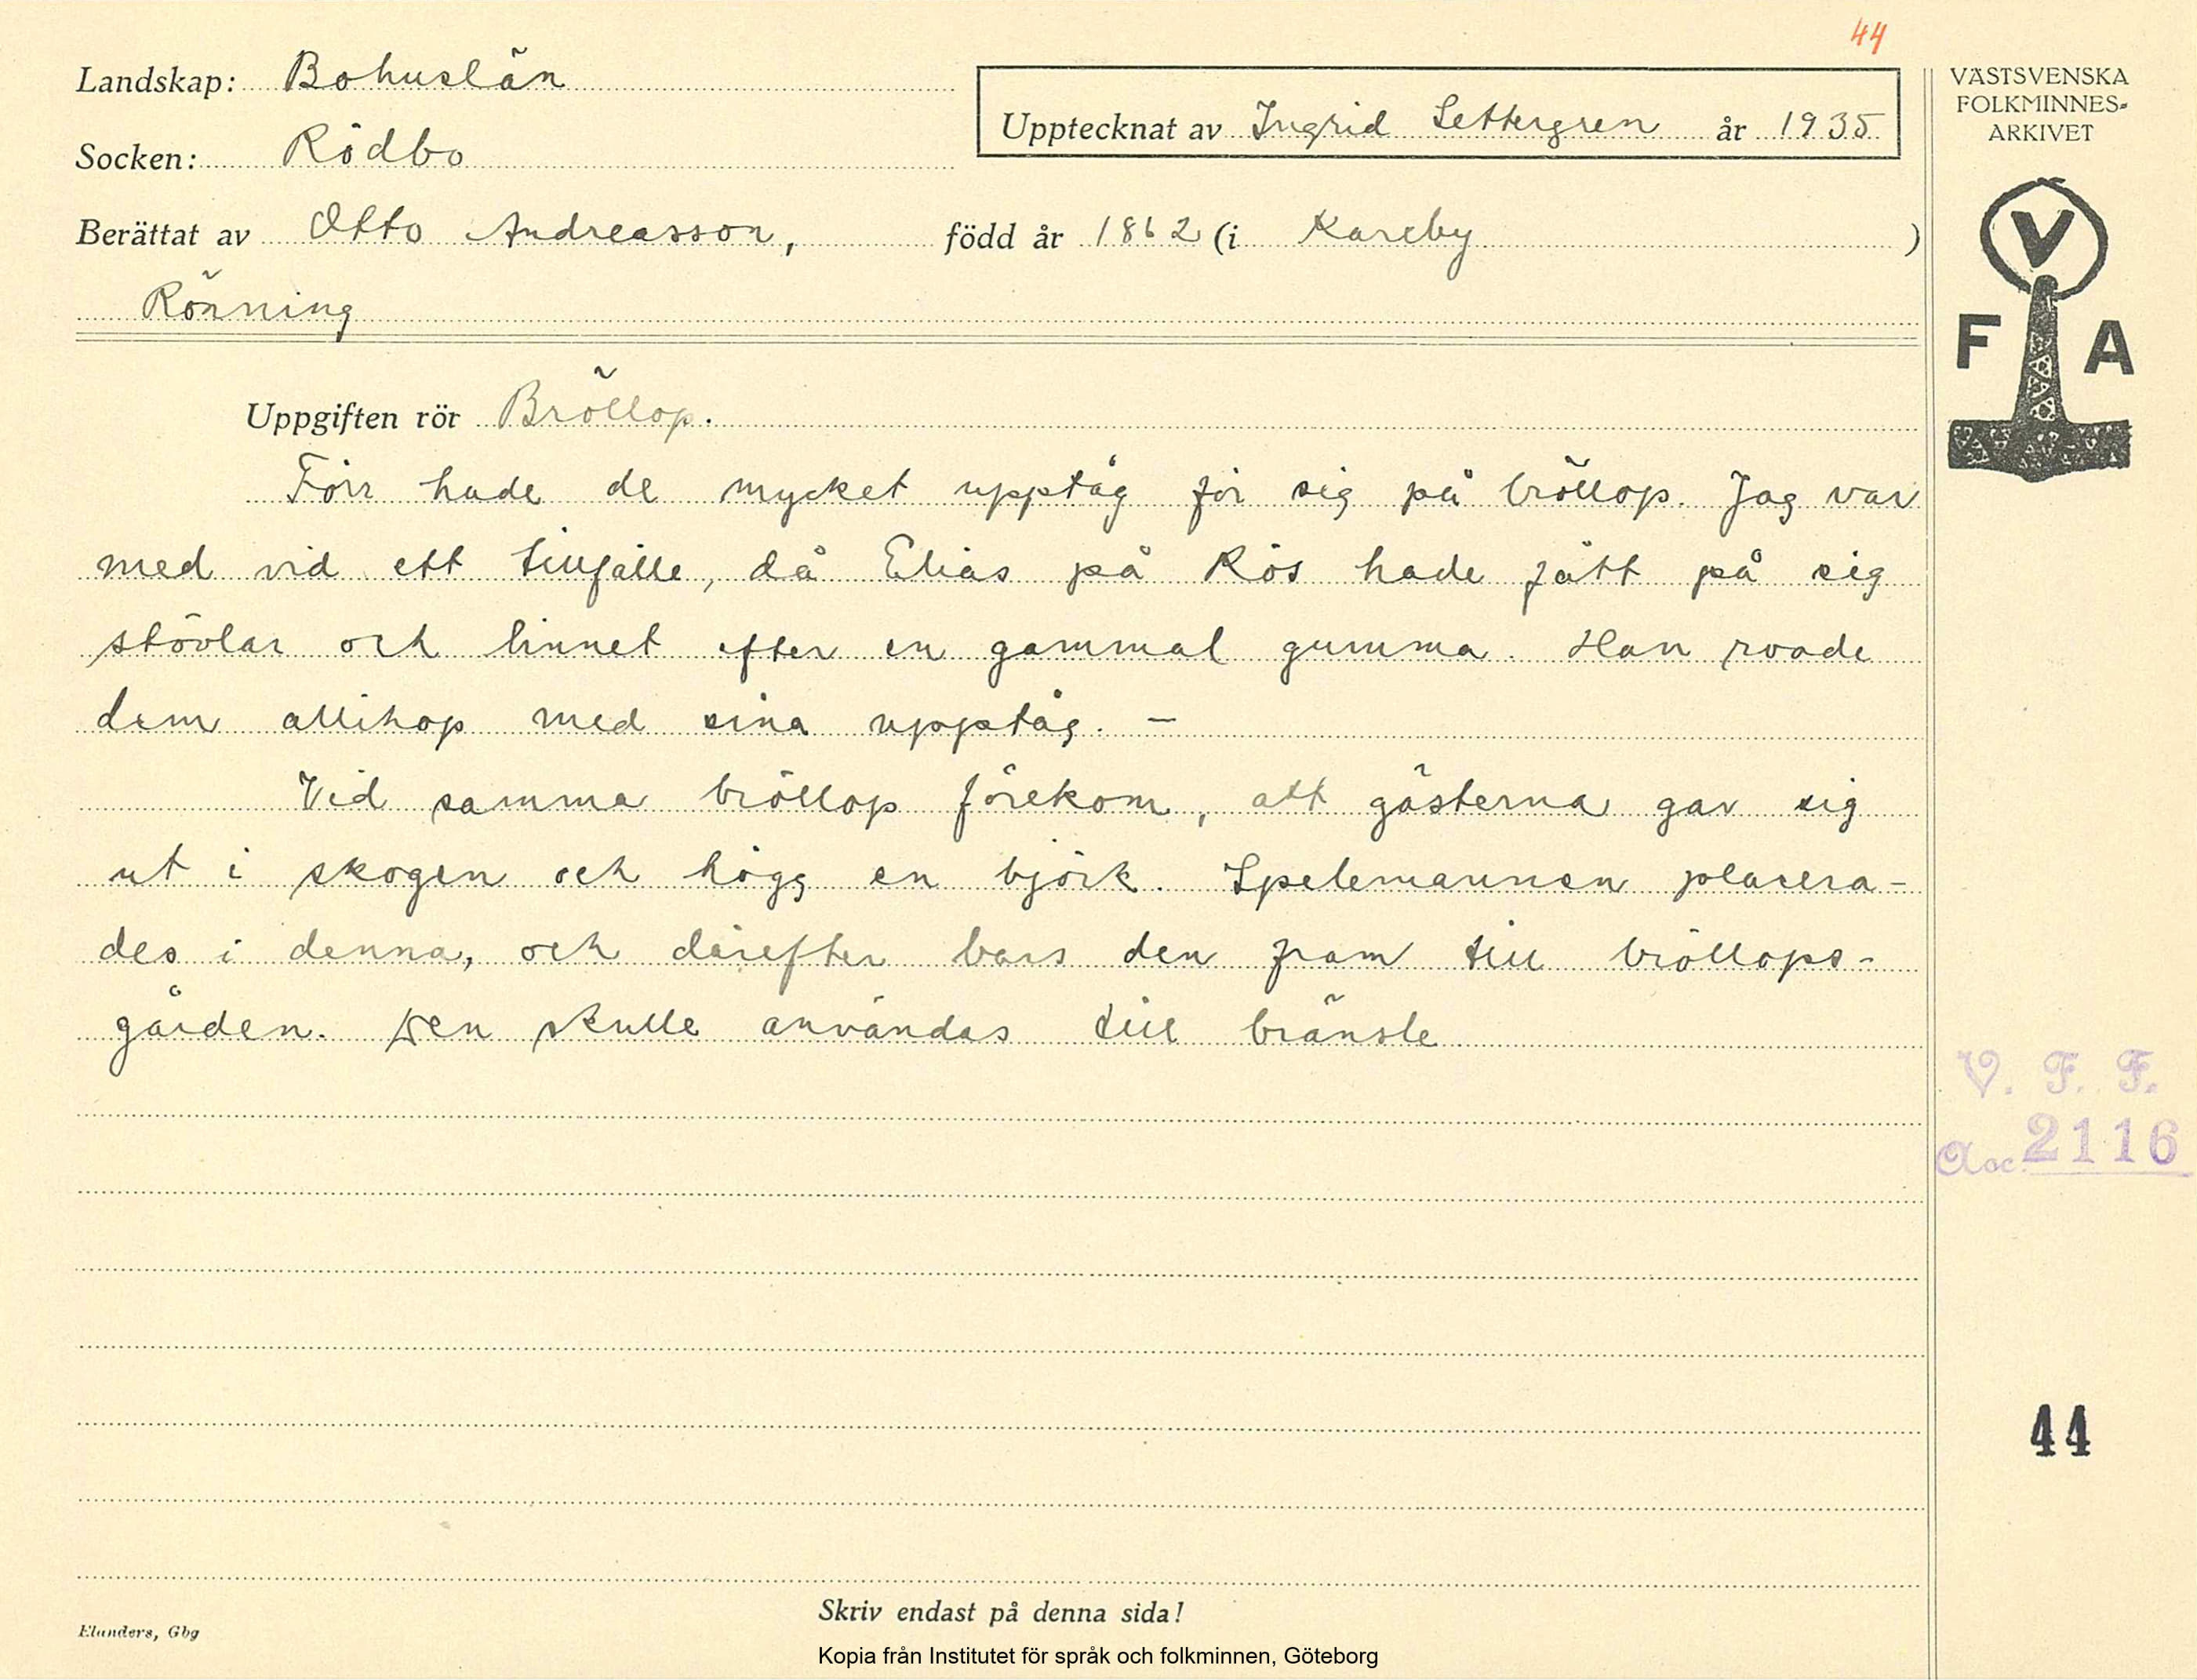 44
Landskap: Bohuslän
VÄSTSVENSKA
FOLKMINNES-
ARKIVET
Upptecknat av Ingrid Settergren år 1935
Socken: Rödbo
Berättat av Otto Andreasson, född år 1862 (i Kareby )
Rönning
V
F A
Uppgiften rör Bröllop.
Förr hade de mycket upptåg för sig på bröllop. Jag var
med vid ett tillfälle, då Elias på Rös hade fått på sig
stövlar och linnet efter en gammal gumma. Han roade
dem allihop med sina upptåg. –
Vid samma bröllop förekom, att gästerna gav sig
ut i skogen och högg en björk. Spelemannen placera-
des i denna, och därefter bars den fram till bröllops-
gården. Den skulle användas till bränsle
V. F. F.
Acc. 2116
44
Skriv endast på denna sida!
Elanders, Gbg
Kopia från Institutet för språk och folkminnen, Göteborg